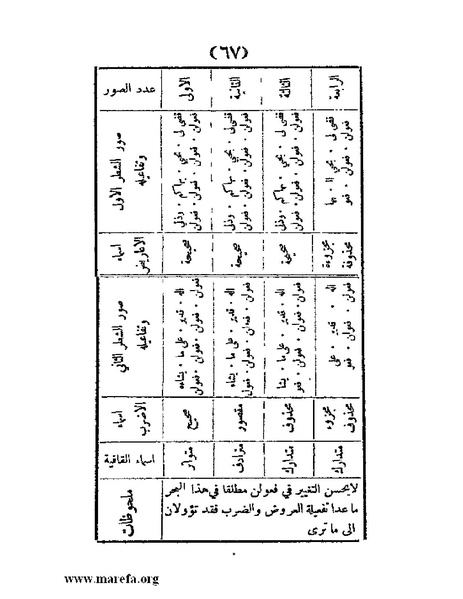 (٦٧)
عدد الصور
الاولى
الثانية
الثالثة
الرابعة
صور الشطر الاول
وتفاعيله
فعولن . فعولن . فعولن . فعولن
فعولن . فعولن . فعولن . فعولن
فعولن . فعولن . فعولن . فعولن
فعولن . فعولن . فعو
اسماء
الاعاريض
صحيحة
صحيحة
صحيحة
مجزوءة
محذوفة
صور الشطر الثاني
وتفاعيله
اله . قدير . على ما . يشاء
فعولن . فعولن . فعولن . فعولن
اله . قدير . على ما . يشاء
فعولن . فعولن . فعولن . فعول
اله . قدير . على ما . يشا
فعولن . فعولن . فعولن . فعو
اله . قدير . على
فعولن . فعولن . فعو
اسماء
الاضرب
صحيح
مقصور
محذوف
مجزوء
محذوف
اسماء القافية
متواتر
مترادف
متدارك
متدارك
ملحوظات
لايحسن التغيير في فعولن مطلقا في هذا البحر
ماعدا تفعيلة العروض والضرب فقد تؤولان
الى ماترى
www.marefa.org